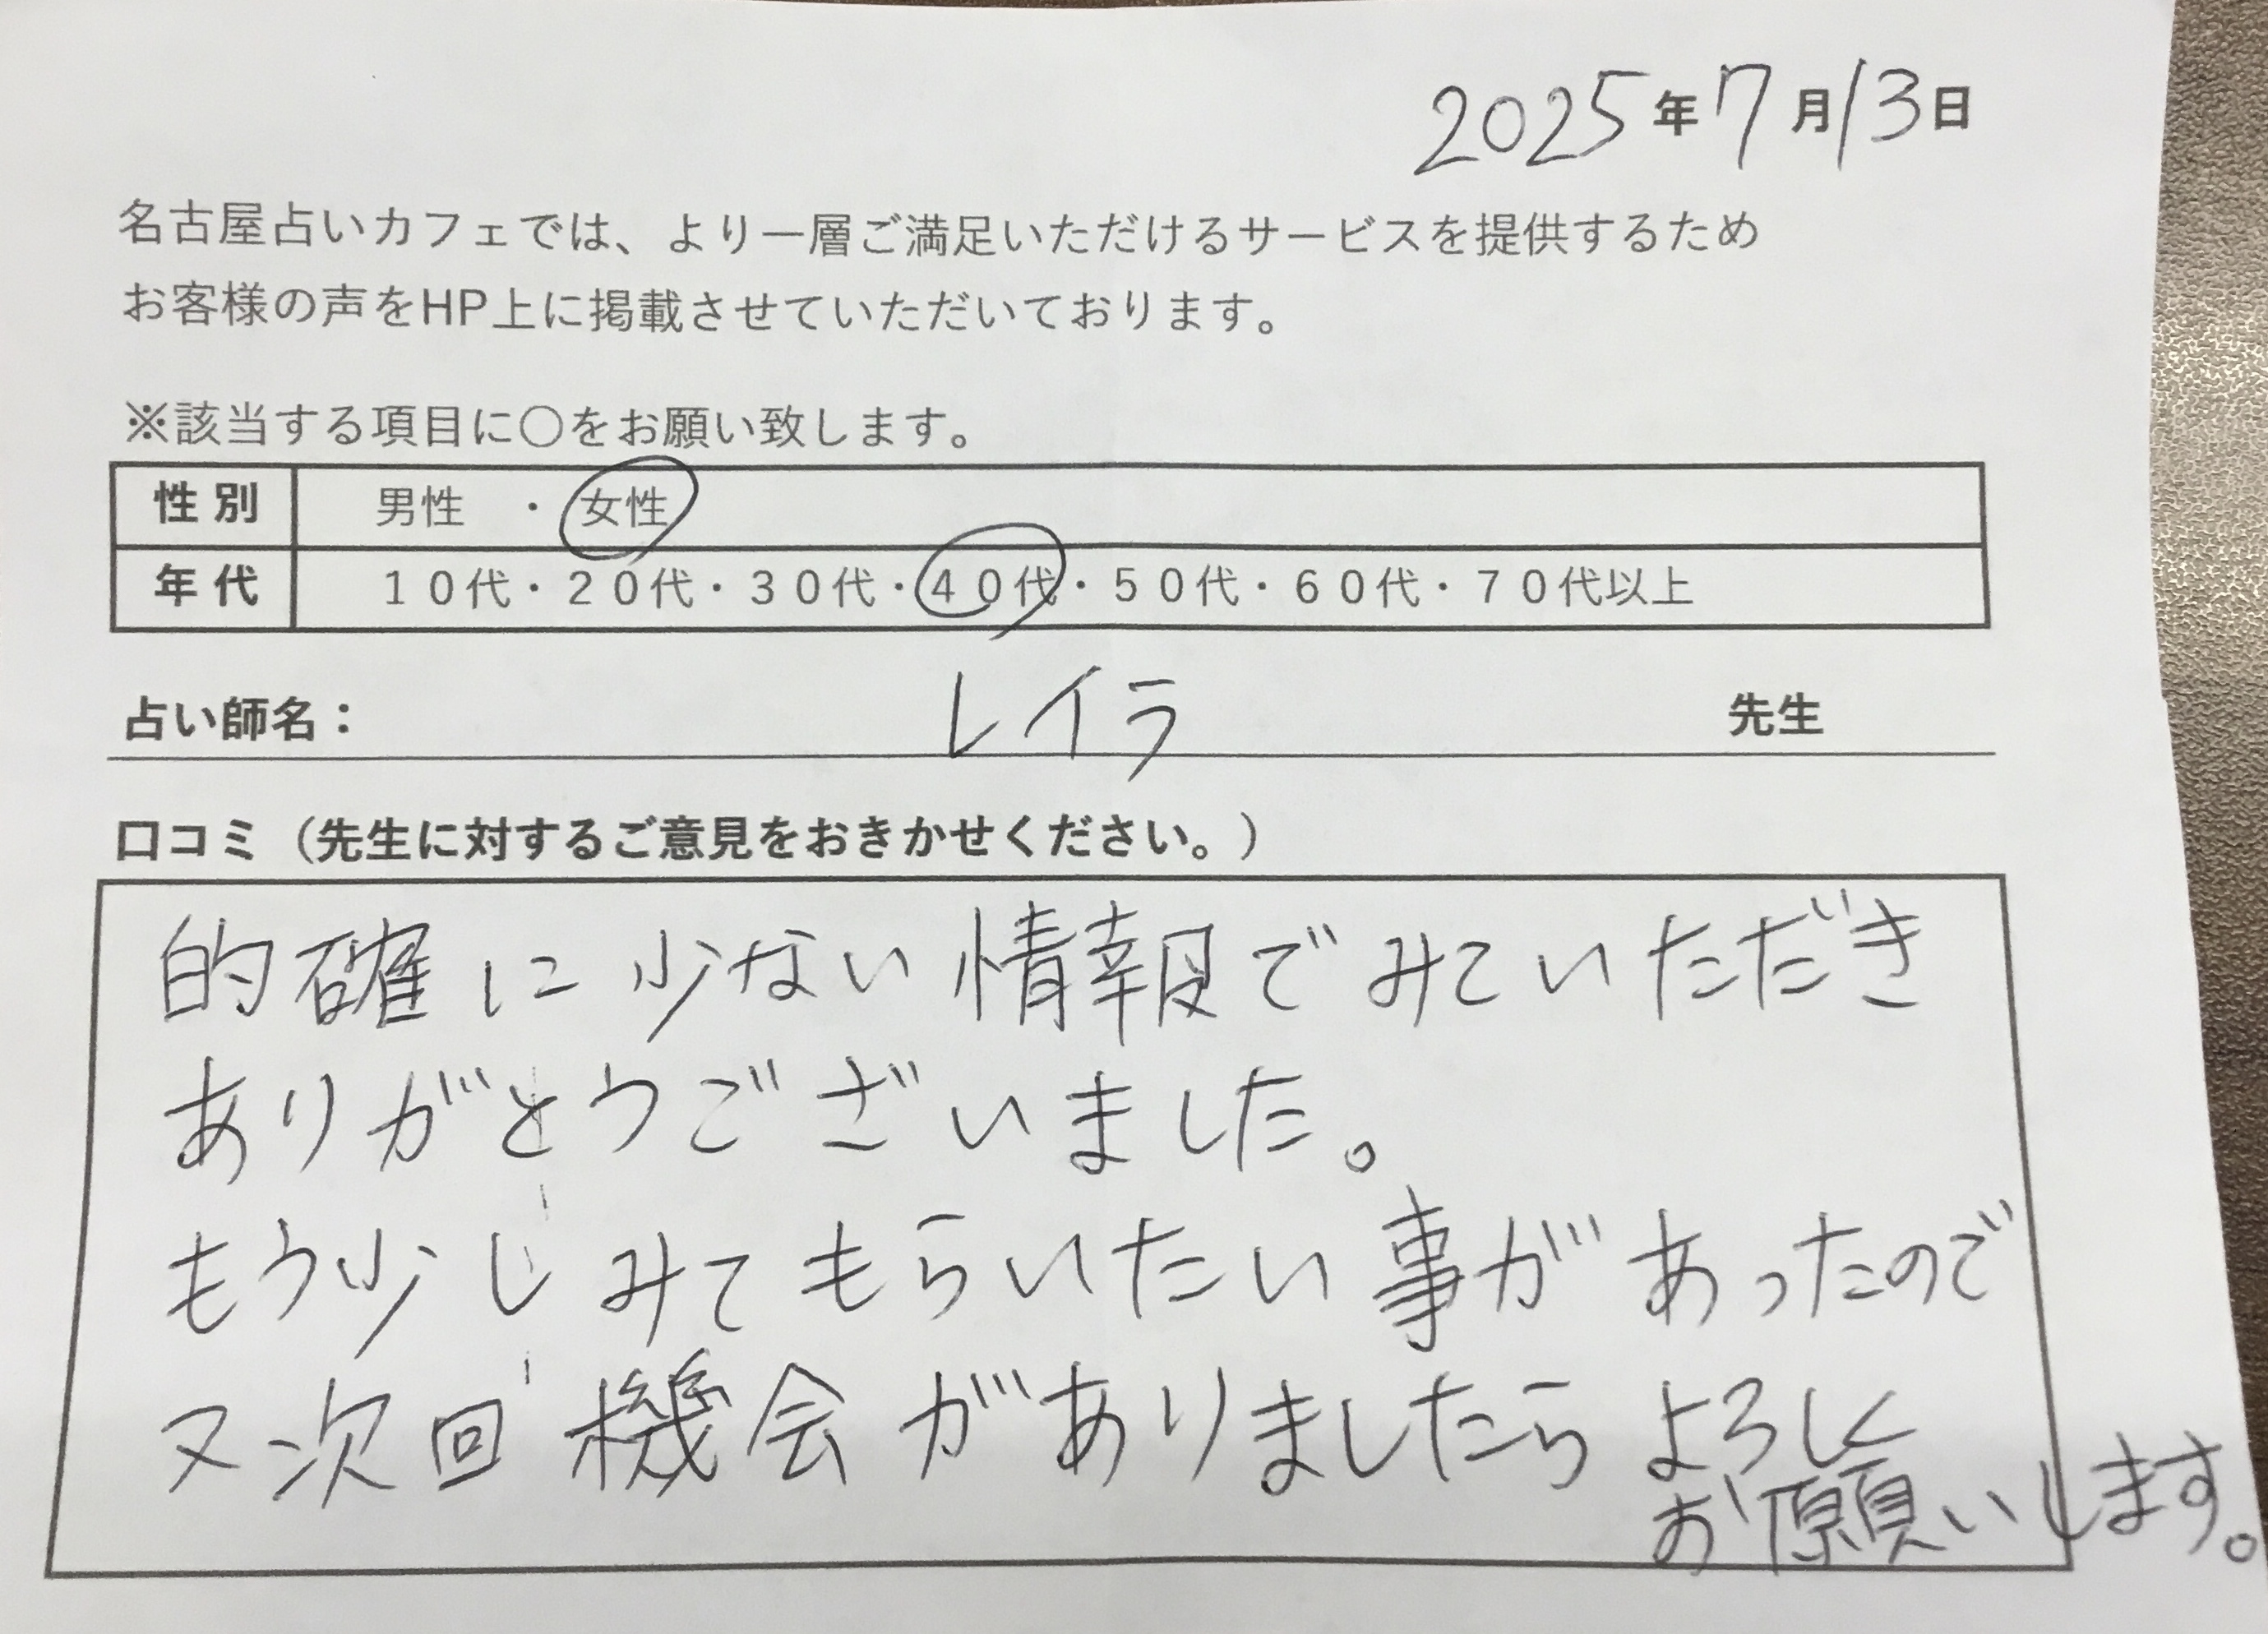 2025年7月13日
名古屋占いカフェでは、より一層ご満足いただけるサービスを提供するため
お客様の声をHP上に掲載させていただいております。
※該当する項目に〇をお願い致します。
性別 男性 ・ 女性
年代 １０代・２０代・３０代・４０代・５０代・６０代・７０代以上
占い師名： レイラ 先生
口コミ（先生に対するご意見をおきかせください。）
的確に少ない情報でみていただき
ありがとうございました。
もう少しみてもらいたい事があったので
又次回機会がありましたらよろしく
お願いします。